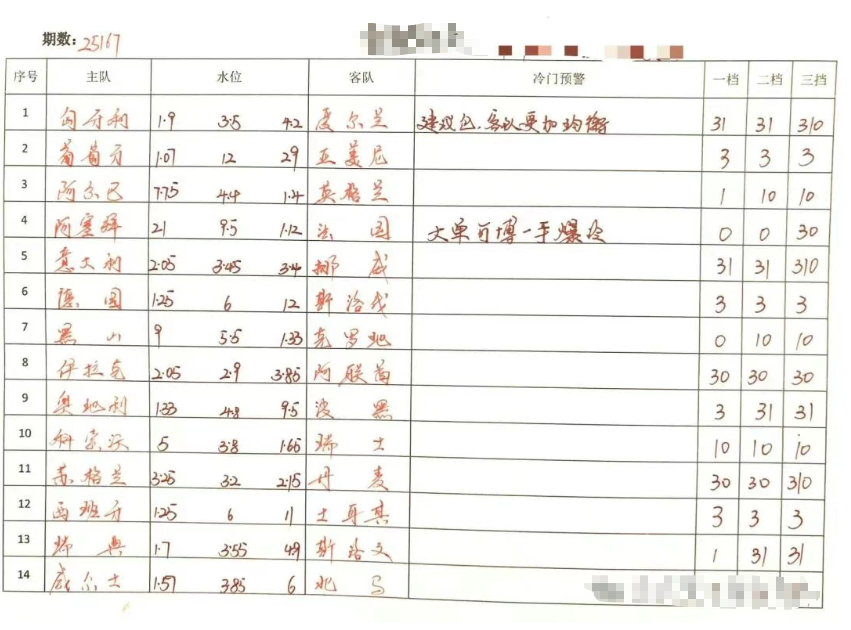 期数: 25167
序号 主队 水位 客队 冷门预警 一档 二档 三挡
1 匈牙利 1.9 3.5 4.2 爱尔兰 建议包.客队更加均衡 31 31 310
2 葡萄牙 1.07 12 29 亚美尼 3 3 3
3 阿尔巴 7.75 4.4 1.4 英格兰 1 10 10
4 阿塞拜 21 9.5 1.12 法国 大单可博一手爆冷 0 0 30
5 意大利 2.05 3.45 3.4 挪威 31 31 310
6 德国 1.25 6 12 斯洛伐 3 3 3
7 黑山 9 5.5 1.33 克罗地 0 10 10
8 伊拉克 2.05 2.9 3.85 阿联酋 30 30 30
9 奥地利 1.33 4.8 9.5 波黑 3 31 31
10 科索沃 5 3.8 1.65 瑞士 10 10 10
11 苏格兰 3.25 3.2 2.15 丹麦 30 30 310
12 西班牙 1.25 6 11 土耳其 3 3 3
13 瑞典 1.7 3.55 4.9 斯洛文 1 31 31
14 威尔士 1.57 3.85 6 北马